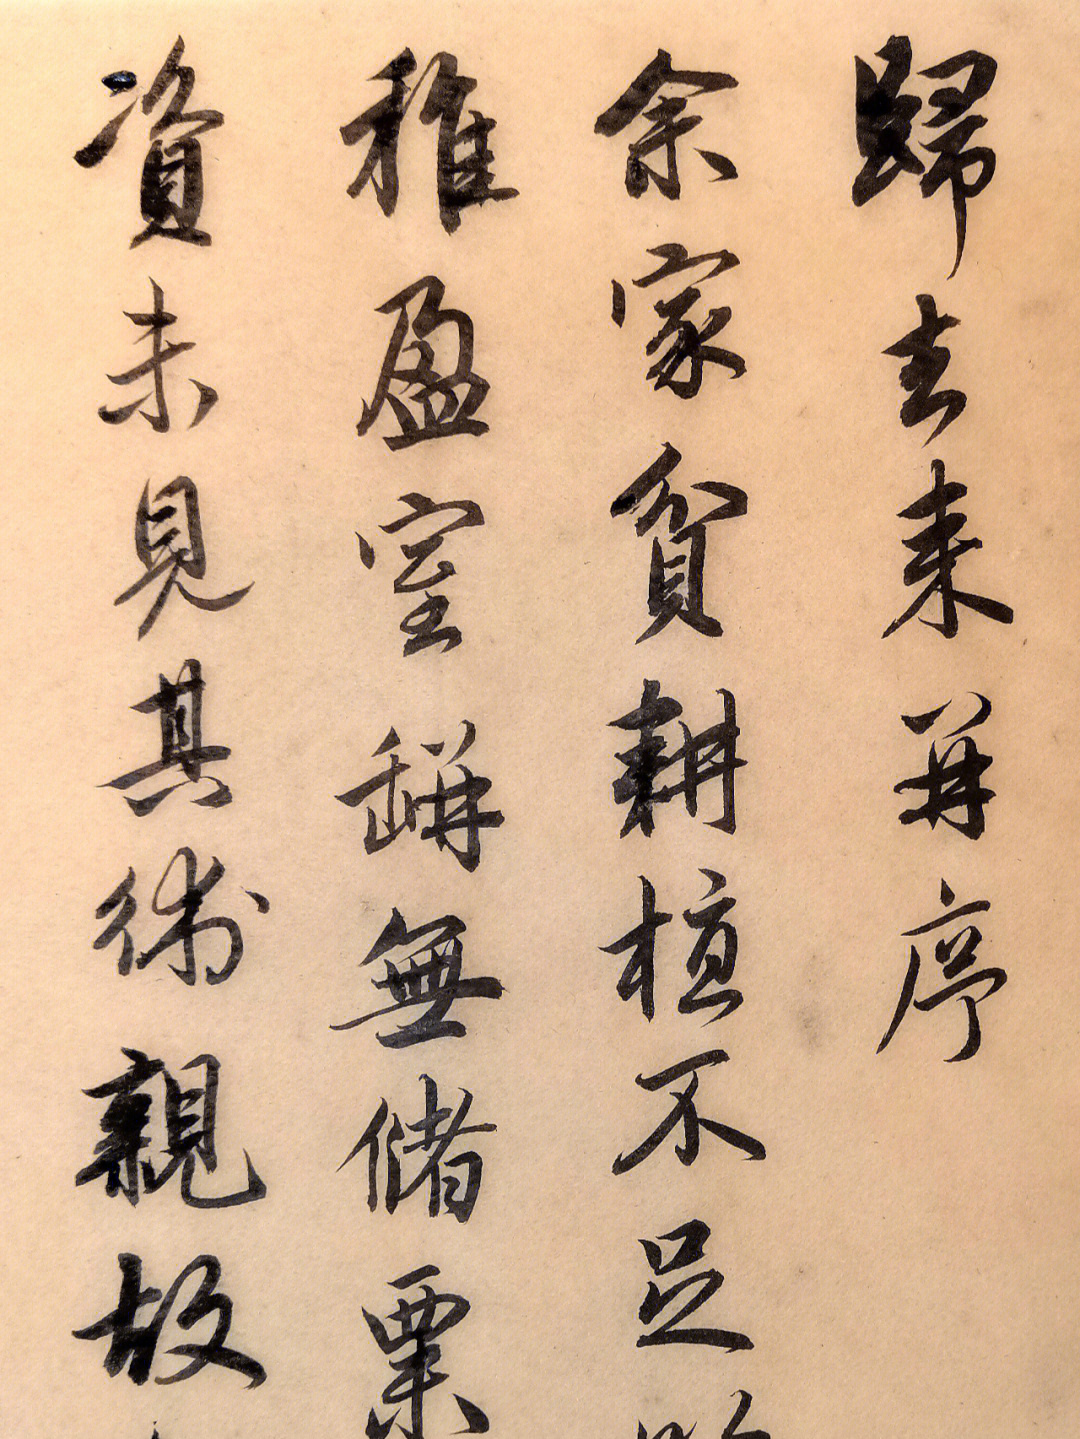 歸去来并序
余家貧耕植不足
稚盈室缾無儲粟
資未見其術親故